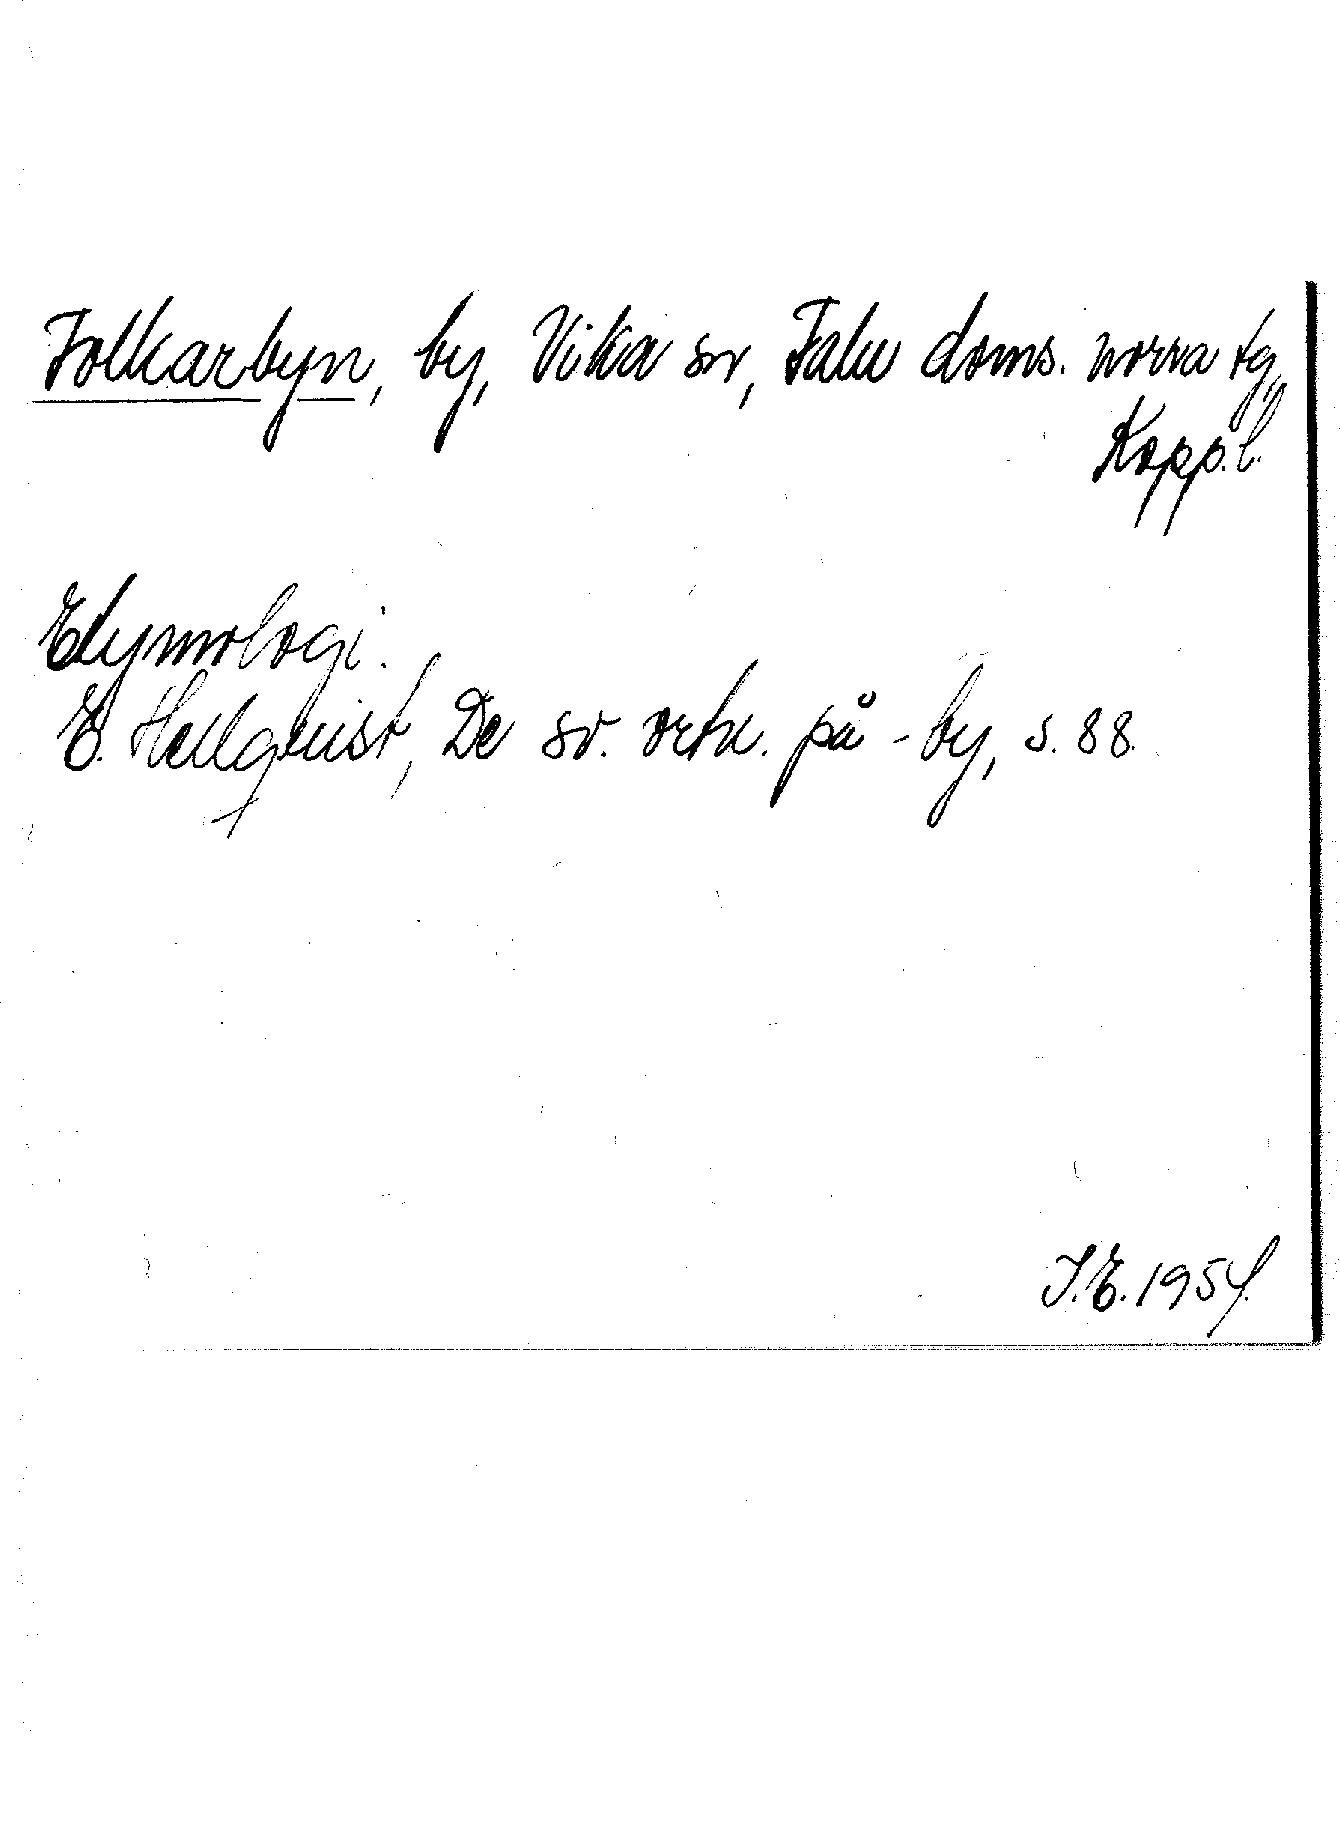 Folkarbyn, by, Vika sn, Falu doms. norra tg,
Kopp.l.
Etymologi.
E. Hellquist, De sv. ortn. på -by, s. 88.
I.E. 1954.